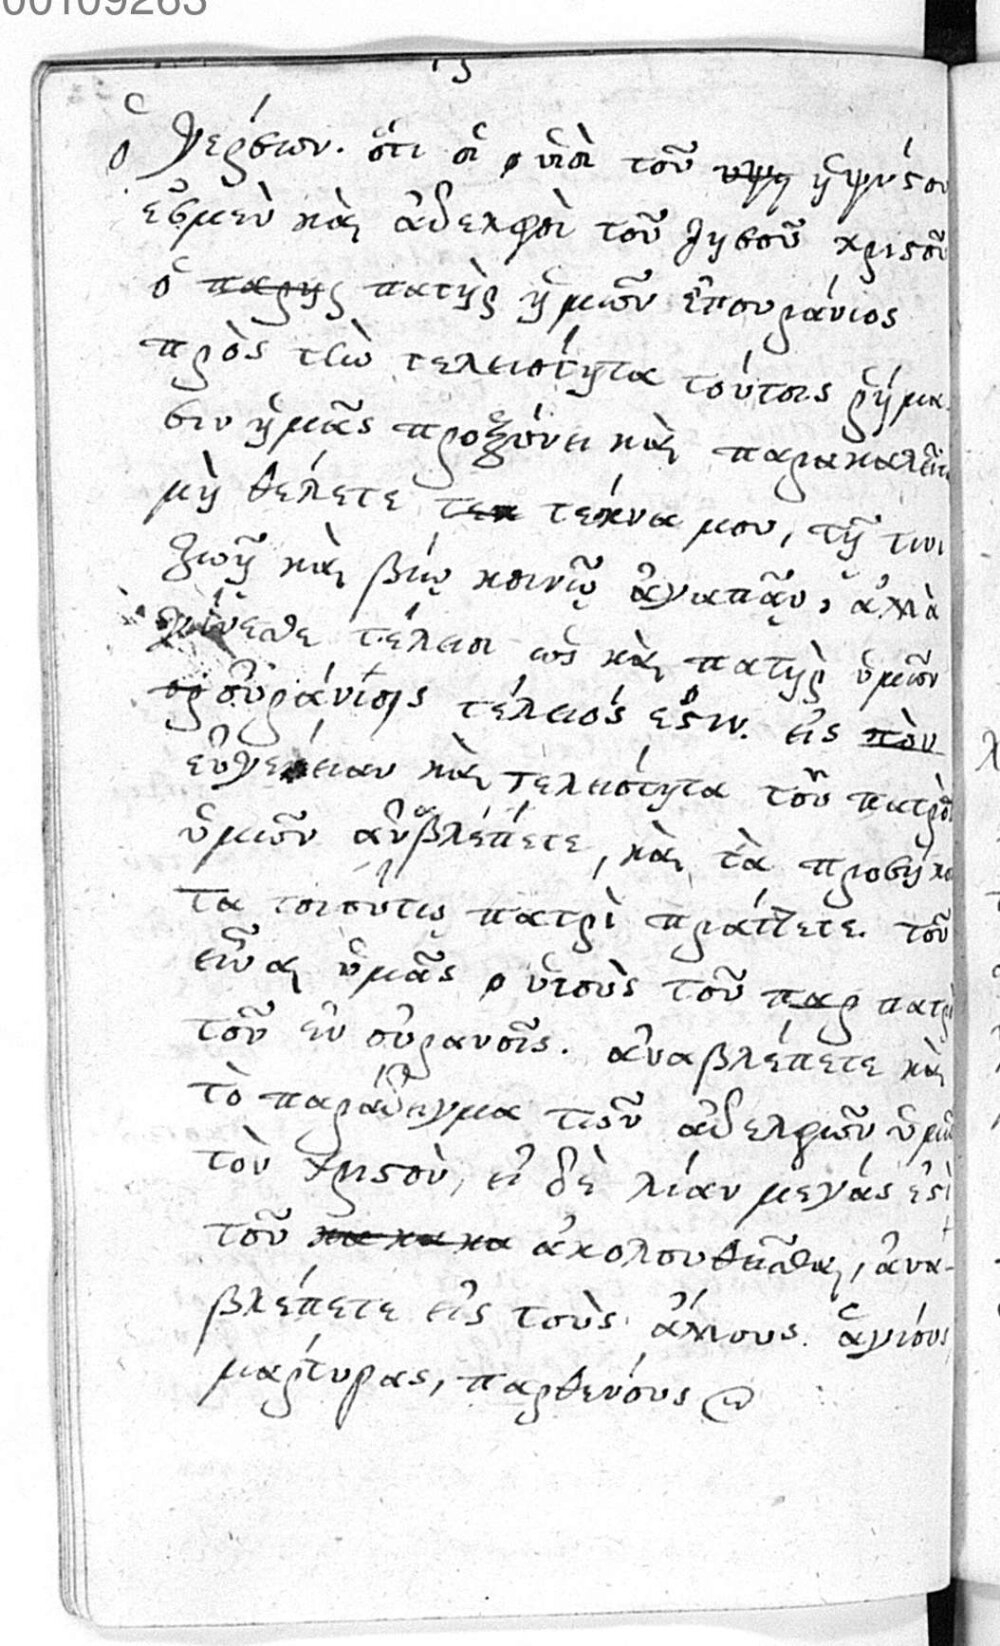 00109263
ὁ Γερσων. ὅτι οἱ υἱοὶ τοῦ υψη ἡψυίσου
ἐσμὲν καὶ ἀδελφοὶ τοῦ Ιησοῦ χριστοῦ
ὁ παρης πατὴρ ἡμῶν ἐπουράνιος
πρὸς τὴν τελειότητα τούτοις ῥήμα
σιν ἡμᾶς προξύνει καὶ παρακαλεῖται
μὴ θέλετε τεκ τέκνα μου, τῇ τινι
ζωῇ καὶ βίῳ κοινῷ ἀγαπᾷν, ἀλλὰ
γίνεσθε τέλειοι ὡς καὶ πατὴρ ὑμῶν
ορ οὐράνιος τέλειός ἐστιν. εἰς πὸν
εὐγένειαν καὶ τελειότητα τοῦ πατρὸς
ὑμῶν ἀναβλέπετε, καὶ τὰ προσήκο
τα τοιούτῳ πατρὶ πράττετε. τοῦ
εἶναι ὑμᾶς υἱοὺς τοῦ παρ πατρὸ
τοῦ ἐν οὐρανοῖς. ἀναβλέπετε καὶ
τὸ παράδειγμα τῶν ἀδελφῶν ὑμῶν
τὸν χριστὸν, εἰ δὲ λίαν μεγάς ἐστὶ
τοῦ κα κα κα ἀκολουθεῖσθαι, ἀνα-
βλέπετε εἰς τοὺς ἄλλους ἁγίους
μάρτυρας, παρθένους